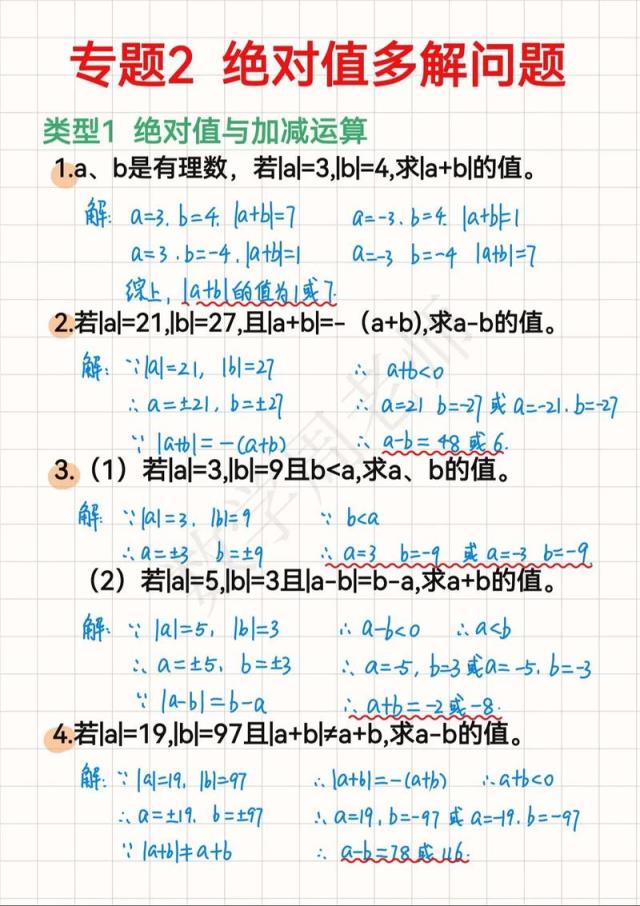 专题2 绝对值多解问题
类型1 绝对值与加减运算
1.a、b是有理数，若|a|=3,|b|=4,求|a+b|的值。
解: a=3. b=4. |a+b|=7 a=-3. b=4. |a+b|=1
a=3. b=-4. |a+b|=1 a=-3 b=-4 |a+b|=7
综上，|a+b|的值为1或7.
2.若|a|=21,|b|=27,且|a+b|=-（a+b),求a-b的值。
解: ∵|a|=21, |b|=27 ∴ a+b<0
∴ a=±21, b=±27 ∴ a=21 b=-27 或 a=-21. b=-27
∵ |a+b|=-(a+b) ∴ a-b=48或6.
3.（1）若|a|=3,|b|=9且b<a,求a、b的值。
解: ∵|a|=3, |b|=9 ∵ b<a
∴a=±3 b=±9 ∴ a=3 b=-9 或 a=-3 b=-9.
（2）若|a|=5,|b|=3且|a-b|=b-a,求a+b的值。
解: ∵ |a|=5, |b|=3 ∴ a-b<0 ∴ a<b
∴ a=±5, b=±3 ∴ a=-5, b=3或a=-5. b=-3
∵ |a-b|=b-a ∴ a+b=-2或-8.
4.若|a|=19,|b|=97且|a+b|≠a+b,求a-b的值。
解: ∵ |a|=19, |b|=97 ∴|a+b|=-(a+b) ∴a+b<0
∴ a=±19. b=±97 ∴ a=19, b=-97 或 a=-19. b=-97
∵ |a+b|≠a+b ∴ a-b=78或116.
数学周老师